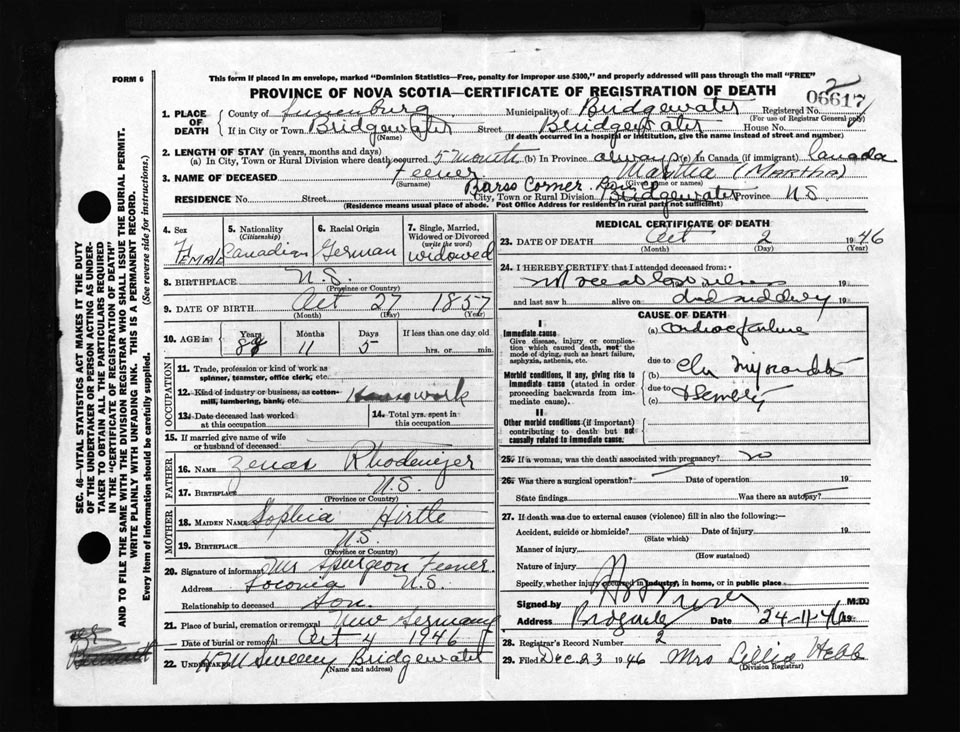 FORM 6
This form if placed in an envelope, marked "Dominion Statistics—Free, penalty for improper use $300," and properly addressed will pass through the mail "FREE"
PROVINCE OF NOVA SCOTIA—CERTIFICATE OF REGISTRATION OF DEATH
2
06617
1. PLACE OF DEATH
County of Lunenburg Municipality of Bridgewater Registered No.
(For use of Registrar General only)
If in City or Town Bridgewater Street Bridgewater House No.
(Name) (If death occurred in a hospital or institution, give the name instead of street and number)
2. LENGTH OF STAY (in years, months and days)
(a) In City, Town or Rural Division where death occurred 5 month (b) In Province always (c) In Canada (if immigrant) Canada
3. NAME OF DECEASED Feener Martha (MARTHA)
(Surname) (Given name or names)
RESIDENCE No. Street Barss Corner City, Town or Rural Division Bridgewater Province N.S.
(Residence means usual place of abode. Post Office Address for residents in rural parts not sufficient)
4. Sex Female
5. Nationality (Citizenship) Canadian
6. Racial Origin German
7. Single, Married, Widowed or Divorced (write the word) widowed
8. BIRTHPLACE N.S.
(Province or Country)
9. DATE OF BIRTH Oct 27 1857
(Month) (Day) (Year)
10. AGE in Years Months Days If less than one day
11 5 hrs. or min.
OCCUPATION
11. Trade, profession or kind of work as spinner, teamster, office clerk, etc.
12. Kind of industry or business, as cotton-mill, lumbering, bank, etc. Housework
13. Date deceased last worked at this occupation
14. Total yrs. spent in this occupation
15. If married give name of wife or husband of deceased
FATHER
16. NAME Zenas Rhodenizer
17. BIRTHPLACE N.S.
(Province or Country)
MOTHER
18. MAIDEN NAME Sophia Hirtle
19. BIRTHPLACE N.S.
(Province or Country)
20. Signature of informant Mr Spurgeon Feener
Address N.S.
Relationship to deceased Son.
21. Place of burial, cremation or removal New Germany
Date of burial or removal Oct 4 1946
22. UNDERTAKER Sweeny Bridgewater
(Name and address)
MEDICAL CERTIFICATE OF DEATH
23. DATE OF DEATH Oct 2 1946
(Month) (Day) (Year)
24. I HEREBY CERTIFY that I attended deceased from:
not see at last illness 19
and last saw h alive on died suddenly 19
CAUSE OF DEATH
I
Immediate cause
Give disease, injury or complication which caused death, not the mode of dying, such as heart failure, asphyxia, asthenia, etc.
(a) Cardiac failure
due to
Morbid conditions, if any, giving rise to immediate cause (stated in order proceeding backwards from immediate cause).
(b) Chr Myocarditis
due to
(c) Senility
II
Other morbid conditions (if important) contributing to death but not causally related to immediate cause.
25. If a woman, was the death associated with pregnancy? no
26. Was there a surgical operation? Date of operation 19
State findings Was there an autopsy?
27. If death was due to external causes (violence) fill in also the following:—
Accident, suicide or homicide? Date of injury 19
(State which)
Manner of injury
(How sustained)
Nature of injury
Specify, whether injury occurred in industry, in home, or in public place
Signed by M.D.
Address Date 24-11-46 19
28. Registrar's Record Number 2
29. Filed Dec 23 1946 Mrs Lillia Hebb
(Division Registrar)
SEC. 46—VITAL STATISTICS ACT MAKES IT THE DUTY
OF THE UNDERTAKER OR PERSON ACTING AS UNDER-
TAKER TO OBTAIN ALL THE PARTICULARS REQUIRED
IN THE "CERTIFICATE OF REGISTRATION OF DEATH"
AND TO FILE THE SAME WITH THE DIVISION REGISTRAR WHO SHALL ISSUE THE BURIAL PERMIT.
WRITE PLAINLY WITH UNFADING INK. THIS IS A PERMANENT RECORD.
Every item of information should be carefully supplied. (See reverse side for instructions.)